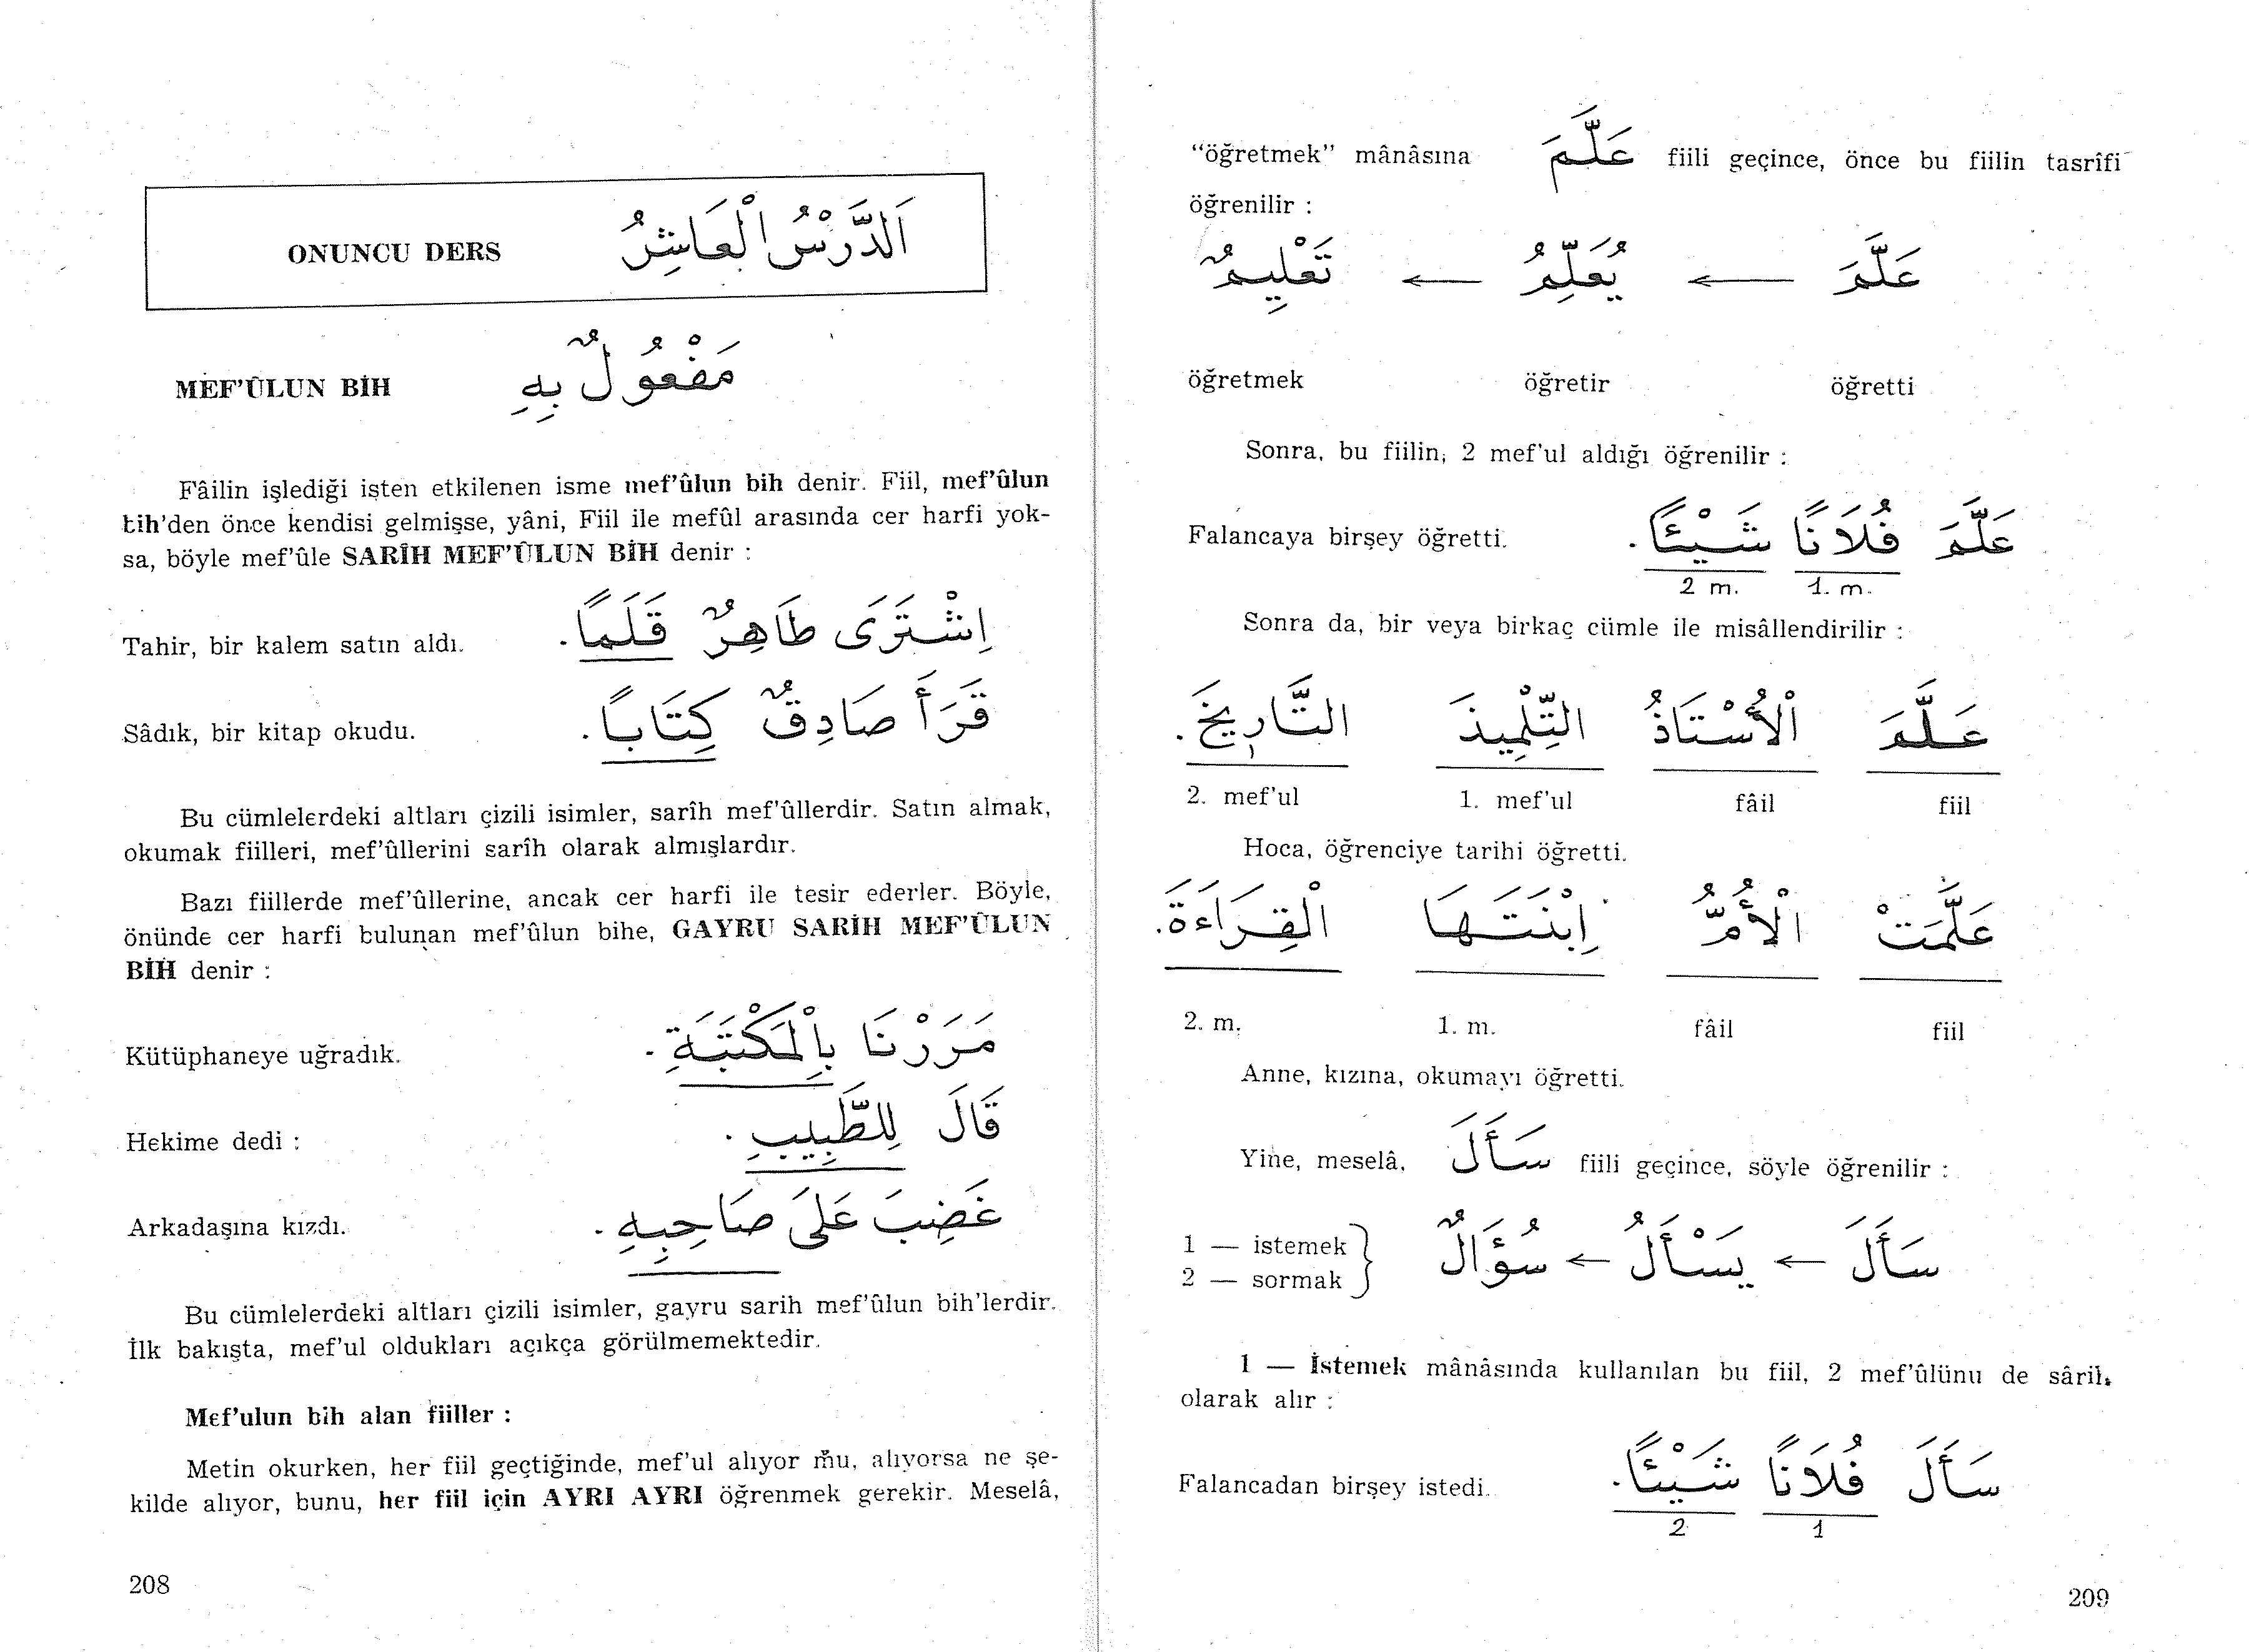 ONUNCU DERS اَلدَّرْسُ الْعَاشِرُ
MEF'ÛLUN BİH مَفْعُولٌ بِهِ
Fâilin işlediği işten etkilenen isme mef'ûlun bih denir. Fiil, mef'ûlun
bih'den önce kendisi gelmişse, yâni, Fiil ile mefûl arasında cer harfi yok-
sa, böyle mef'ûle SARÎH MEF'ÛLUN BİH denir :
Tahir, bir kalem satın aldı. اِشْتَرَى طَاهِرٌ قَلَمًا.
Sâdık, bir kitap okudu. قَرَأَ صَادِقٌ كِتَابًا.
Bu cümlelerdeki altları çizili isimler, sarîh mef'ûllerdir. Satın almak,
okumak fiilleri, mef'ûllerini sarîh olarak almışlardır.
Bazı fiillerde mef'ûllerine, ancak cer harfi ile tesir ederler. Böyle,
önünde cer harfi bulunan mef'ûlun bihe, GAYRU SARİH MEF'ÛLUN
BİH denir :
Kütüphaneye uğradık. مَرَرْنَا بِالْمَكْتَبَةِ.
Hekime dedi : قَالَ لِلطَّبِيبِ.
Arkadaşına kızdı. غَضِبَ عَلَى صَاحِبِهِ.
Bu cümlelerdeki altları çizili isimler, gayru sarih mef'ûlun bih'lerdir.
İlk bakışta, mef'ul oldukları açıkça görülmemektedir.
Mef'ulun bih alan fiiller :
Metin okurken, her fiil geçtiğinde, mef'ul alıyor mu, alıyorsa ne şe-
kilde alıyor, bunu, her fiil için AYRI AYRI öğrenmek gerekir. Meselâ,
208
"öğretmek" mânâsına عَلَّمَ fiili geçince, önce bu fiilin tasrîfi
öğrenilir :
عَلَّمَ ← يُعَلِّمُ ← تَعْلِيمٌ
öğretmek öğretir öğretti
Sonra, bu fiilin, 2 mef'ul aldığı öğrenilir :
Falancaya birşey öğretti. عَلَّمَ فُلَانًا شَيْئًا.
2 m. 1. m.
Sonra da, bir veya birkaç cümle ile misâllendirilir :
عَلَّمَ الْأُسْتَاذُ التِّلْمِيذَ التَّارِيخَ.
2. mef'ul 1. mef'ul fâil fiil
Hoca, öğrenciye tarihi öğretti.
عَلَّمَتْ الْأُمُّ اِبْنَتَهَا الْقِرَاءَةَ.
2. m. 1. m. fâil fiil
Anne, kızına, okumayı öğretti.
Yine, meselâ, سَأَلَ fiili geçince, söyle öğrenilir :
سَأَلَ ← يَسْأَلُ ← سُؤَالٌ
1 — istemek
2 — sormak
1 — İstemek mânâsında kullanılan bu fiil, 2 mef'ûlünu de sârih
olarak alır :
Falancadan birşey istedi. سَأَلَ فُلَانًا شَيْئًا.
2 1
209